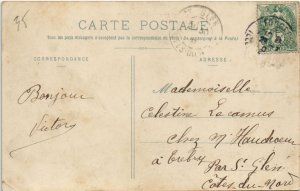 35
CARTE POSTALE
Tous les pays étrangers n'acceptent pas la correspondance au recto (Se renseigner à la Poste)
CORRESPONDANCE
ADRESSE
Bonjour
Victor
Mademoiselle
Celestine Lacamus
Chez Mr
à
Par St Glen
Côtes-du-Nord